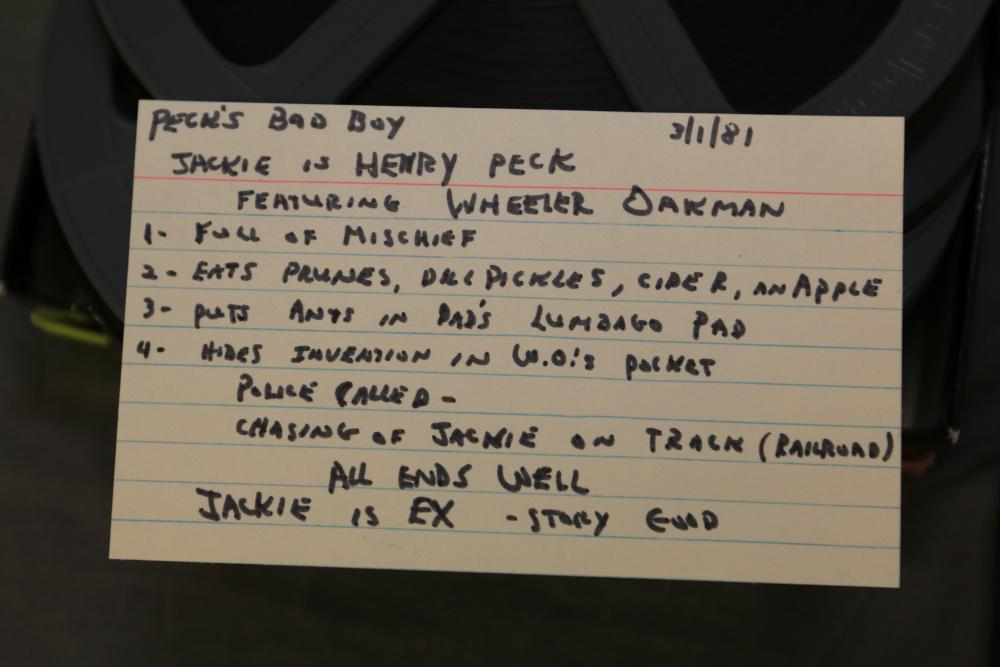 PECK'S BAD BOY 3/1/81
JACKIE IS HENRY PECK
FEATURING WHEELER OAKMAN
1- FULL OF MISCHIEF
2- EATS PRUNES, DILL PICKLES, CIDER, AN APPLE
3- PUTS ANTS IN DAD'S LUMBAGO PAD
4- HIDES INVENTION IN W.O.'S POCKET
POLICE CALLED -
CHASING OF JACKIE ON TRACK (RAILROAD)
ALL ENDS WELL
JACKIE IS EX - STORY GOOD